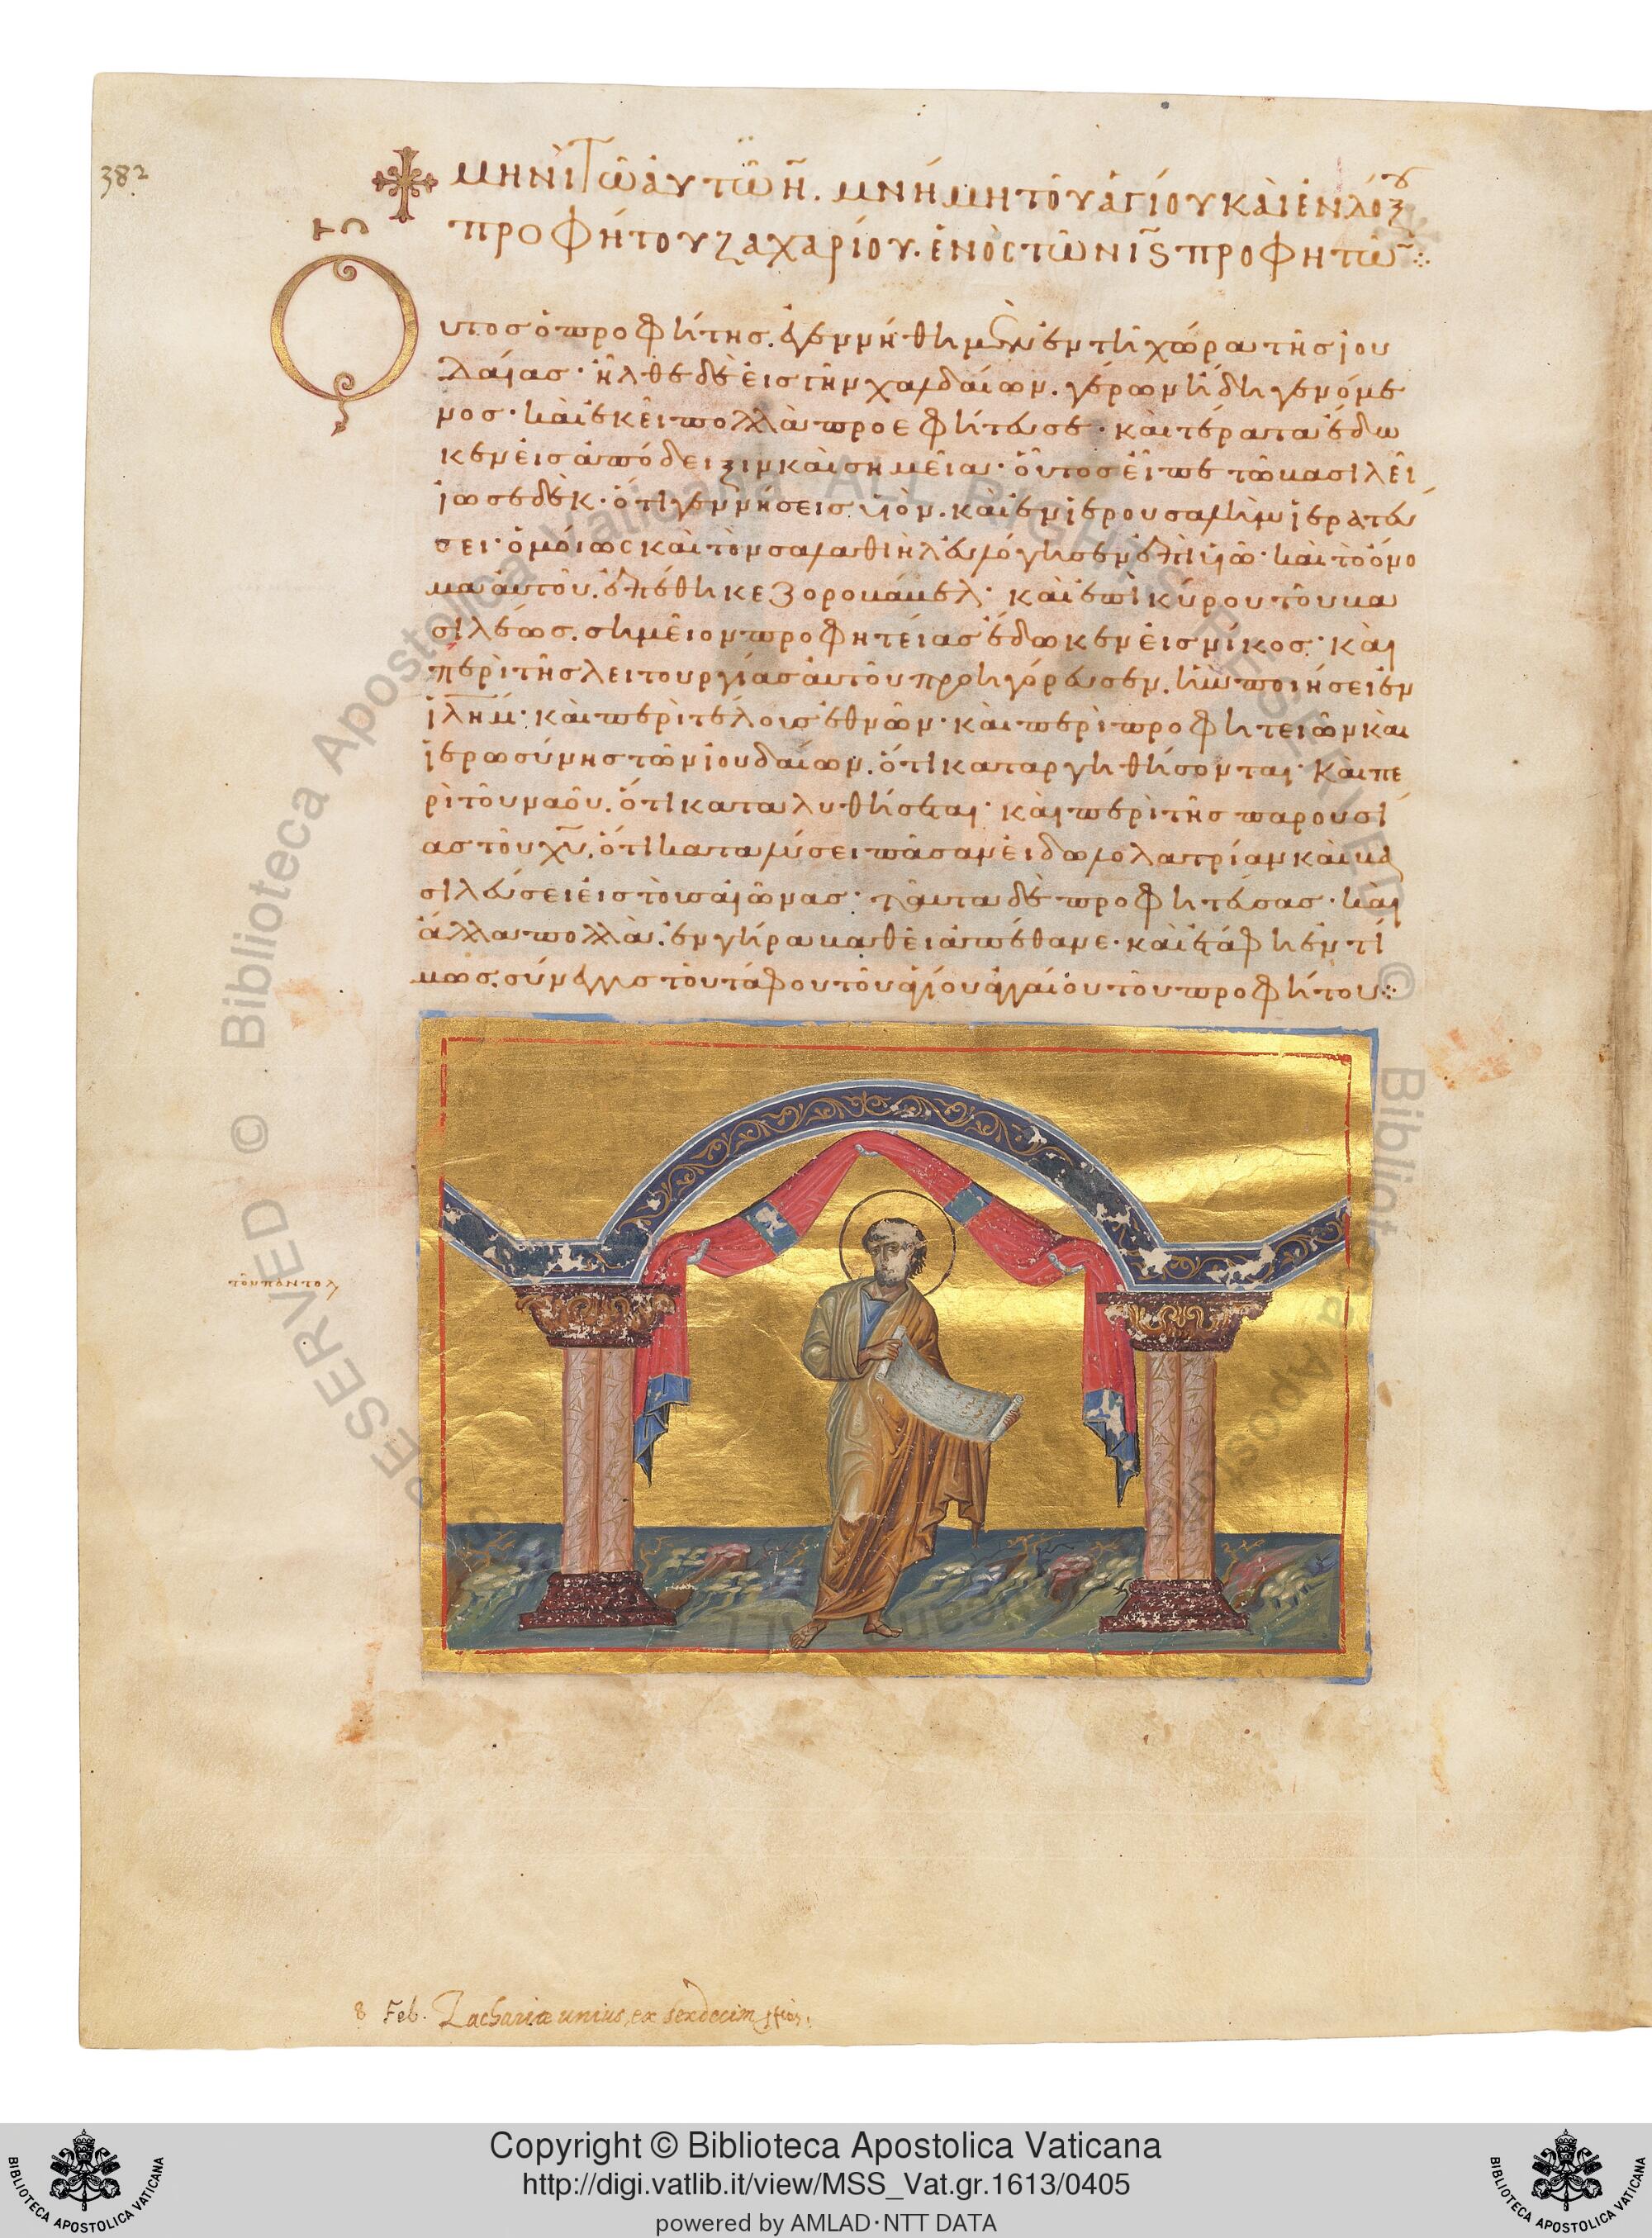 382
μηνὶ τῶ αὐτῶ η̄. μνήμη τοῦ ἁγίου καὶ ἐνδόξου
προφήτου ζαχαρίου. ἑνὸς τῶν ις̄ προφητῶ̄:
Οὗτος ὁ προφήτης. ἐγεννήθη μὲν ἐν τῆ χώρα τῆς ἰου
δαίας· ἦλθε δὲ εἰς τὴν χαλδαίων. γέρων ἤδη γενόμε
νος· καὶ ἐκεῖ πολλὰ προεφήτευσε· καὶ τέρατα ἔδω
κεν εἰς ἀπόδειξιν καὶ σημεῖα· οὗτος εἶπε τῶ βασιλεῖ
ἰωσεδὲκ· ὅτι γεννήσεις υἱὸν. καὶ ἐν ἱερουσαλὴμ ἱερατεύ
σει· ὁμοίως καὶ τὸν σαλαθιὴλ εὐλόγησεν ἐπὶ υἱῶ· καὶ τὸ ὄνο
μα αὐτοῦ. ἐπέθηκε ζοροβάβελ· καὶ ἐπὶ κύρου τοῦ βα
σιλέως. σημεῖον προφητείας ἔδωκεν εἰς νίκος· καὶ
περὶ τῆς λειτουργίας αὐτοῦ προηγόρευσεν. ἣν ποιήσει ἐν
ἱλημ̄· καὶ περὶ τέλους ἐθνῶν· καὶ περὶ προφητειῶν καὶ
ἱερωσύνης τῶν ἰουδαίων. ὅτι καταργηθήσονται· καὶ πε
ρὶ τοῦ ναοῦ. ὅτι καταλυθήσεται· καὶ περὶ τῆς παρουσί
ας τοῦ χ̄ῡ. ὅτι καταλύσει πᾶσαν εἰδωλολατρίαν καὶ βα
σιλεύσει εἰς τοὺς αἰῶνας· ταῦτα δὲ προφητεύσας· καὶ
ἄλλα πολλὰ. ἐν γήρα βαθεῖ ἀπέθανε· καὶ ἐτάφη ἐντί
μως. σύνεγγυς τοῦ τάφου τοῦ ἁγίου ἀγγαίου τοῦ προφήτου:
8 Feb. Zachariæ unius, ex sexdecim
© Biblioteca Apostolica Vaticana ALL RIGHTS RESERVED
Copyright © Biblioteca Apostolica Vaticana
http://digi.vatlib.it/view/MSS_Vat.gr.1613/0405
powered by AMLAD·NTT DATA
BIBLIOTECA APOSTOLICA VATICANA
BIBLIOTECA APOSTOLICA VATICANA